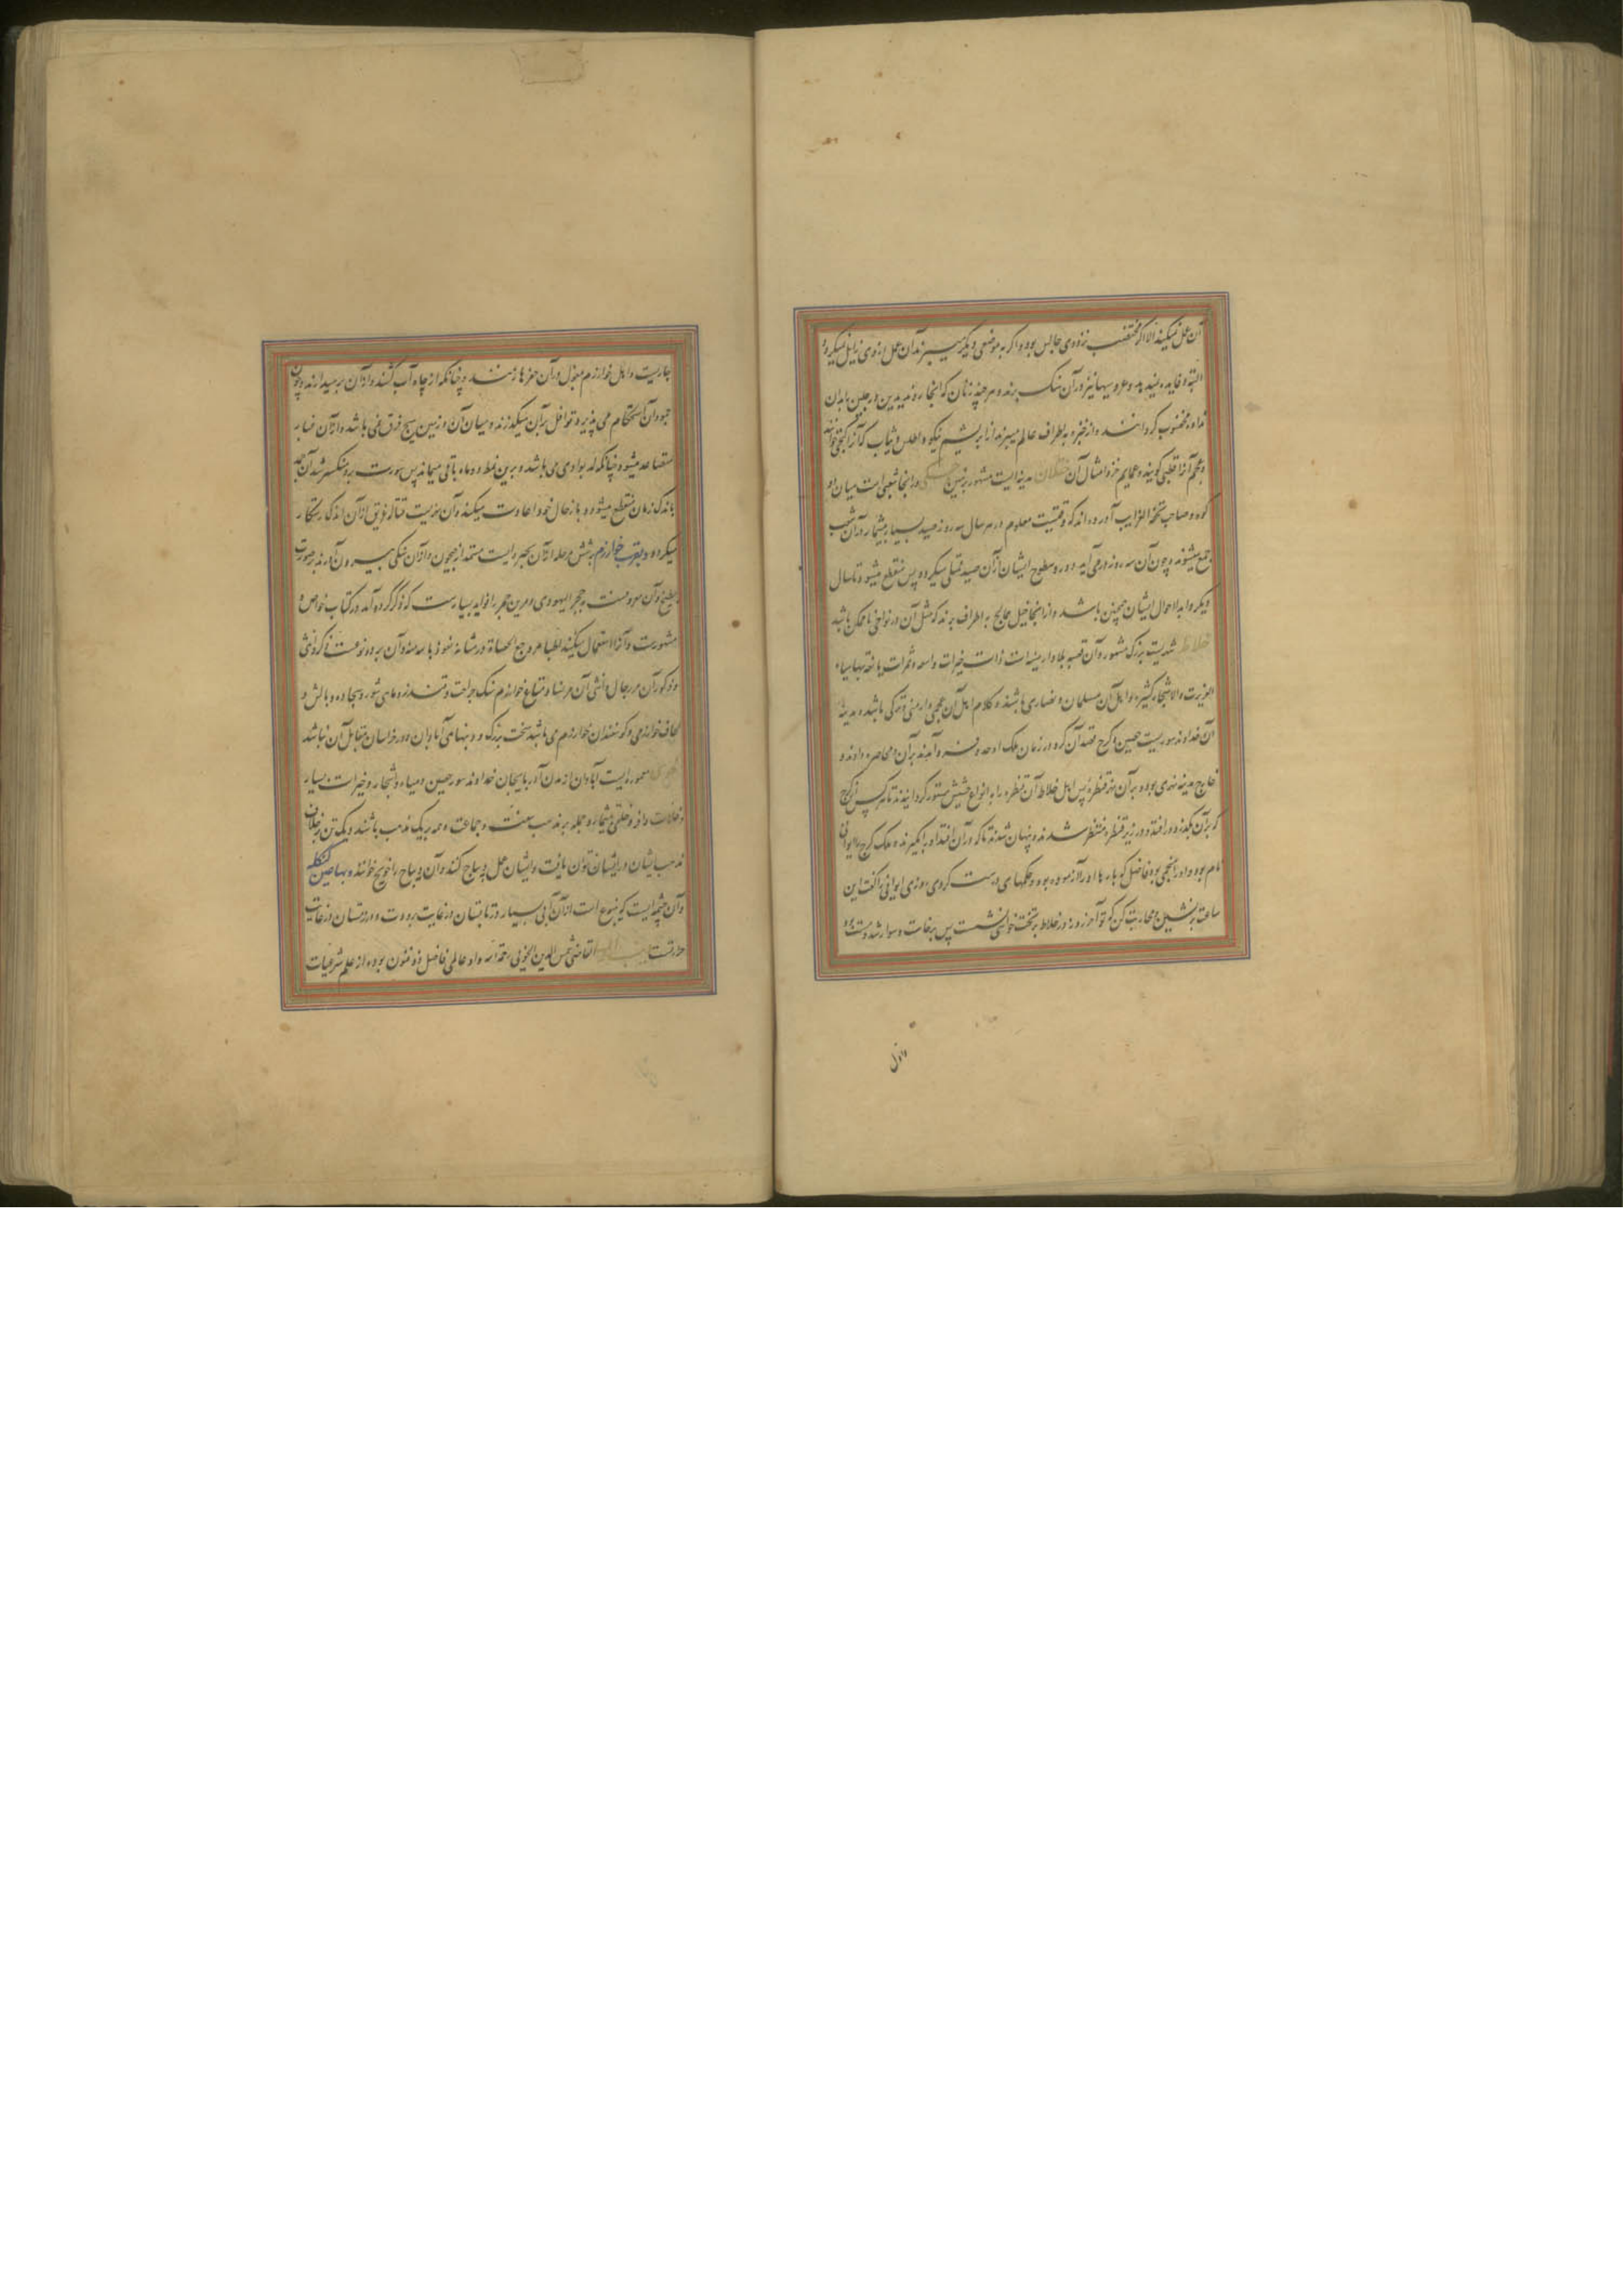 آن عمل نمیکند الا اگر مغتصب نزد وی جالس بود و اگر به موضعی دیگر میبرند آن عمل از وی زایل میگردد
البته و فایده نمیدهد و عروسیها نیز در آن سنک برند و هر چند زنان که انجا رود بدیدن در حین بابدان
اطراف عالم میبرند از ابریشم نیکو و اطلس و ثیاب که آنرا
و عجم آنرا قطنی گویند و عمایم خز و امثال آن ختلان مدینه ایست مشهور بزمین و در انجا شعبی است میان دو
کوه و صاحب تحفة الغرایب آورده اند که وقتیست معلوم در هر سال سه روز صید بسیار بیشمار در آن شعب
جمع میشوند و چون آن سه روز در می آید دور و سطوح ایشان از آن صید ممتلی میگردد پس منقطع میشود تا سال
دیگر و ابدا احوال ایشان همچنین باشد و از انجا خیل به اطراف برند که مثل آن در نواحی ناممکن باشد
خلاط شهریست بزرگ مشهور و آن قصبه بلاد ارمینیه است ذات خیرات واسعه و ثمرات یانعه بها میاه
الغزیرت و الاشجار کثیره و اهل آن مسلمان و نصاری باشند و کلام اهل آن عجمی و ارمنی و ترکی باشد و مدینه
آن خداوند سوریست حصین و کرج قصد آن کرد در زمان ملک اوحد و فرود آمدند بر آن و محاصره دادند و
خارج مدینه نهری بود و بر آن نهر قنطرهٔ پس اهل خلاط آن قنطره را به انواع حشیش مستور کردانیدند تا هر کس از کرج
که بر آن بگذرد در افتد و در زیر قنطره منتظر شدند و پنهان شدند تا که در آن افتد او را بگیرند و ملک کرج را ایوانی
نام بود و او را منجمی بوده فاضل که بارها او را آزموده بود و حکمهای درست کردی روزی ایوانی را گفت این
ساعت برنشین و محاربت کن که تو آخر روز در خلاط بر تخت خواهی نشست پس برخاست و سوار شد و مست بوده
و اول
جاریست و اهل خوارزم معول در آن حفرها زنند و چنانکه از چاه آب کشند و از آن بر میدارند و چون
جمود آن استحکام می پذیرد قوافل بر آن میگذرند و میان آن و زمین هیچ فرق نمی باشد و از آن غبار
متصاعد میشود چنانکه به بوادی می باشد و برین نمط دو ماه باقی میماند پس سورت برد منکسر شد آن جمد
باندک زمان منقطع میشود و باز بحال خود اعادت میکند و آن نهریست قتاله غریق از آن اندک رستکار
میکردد و بقرب خوارزم بر شش مرحله از آن بحیره ایست مستمد از جیحون و از آن سنکی بیرون آرند بر صورت
بطیخ و آن معروفست به حجر الیهودی و مر این حجر را فواید بسیارست که ذکر کرده آمد در کتاب خواص و
مشهورست و آنرا استعمال میکنند اطبا مر وجع الحصاة در مثانه و آن بر دو نوعست ذکر و انثی
و ذکور آن مر رجال و انثی آن مر نسا و متاع خوارزم سنک جراحت و قندز و ماهی شور و سجاده و بالش و
لحاف خوارزمی و کوسفندان خوارزم می باشد سخت بزرگ و دنبهای آبادان و در خراسان مقابل آن نباشد
خوی معموره ایست آبادان از مدن آذربایجان خداوند سور حصین و میاه و اشجار و خیرات بسیار
و غلات وافر و خلقی بیشمار و جمله بر مذهب سنت و جماعت و همه بر یک مذهب باشند و یک تن بر خلاف
مذهب ایشان در ایشان نتوان یافت و ایشان عمل دیباج کنند و آن دیباج را خویج خوانند و بها عین کنکله
و آن چشمه ایست که ینبوع است از آن آبی بسیار در تابستان در غایت برودت و در زمستان در غایت
حرارت القاضی شمس الدین الخویی رحمه الله و او عالمی فاضل ذو فنون بوده از علم شرعیات